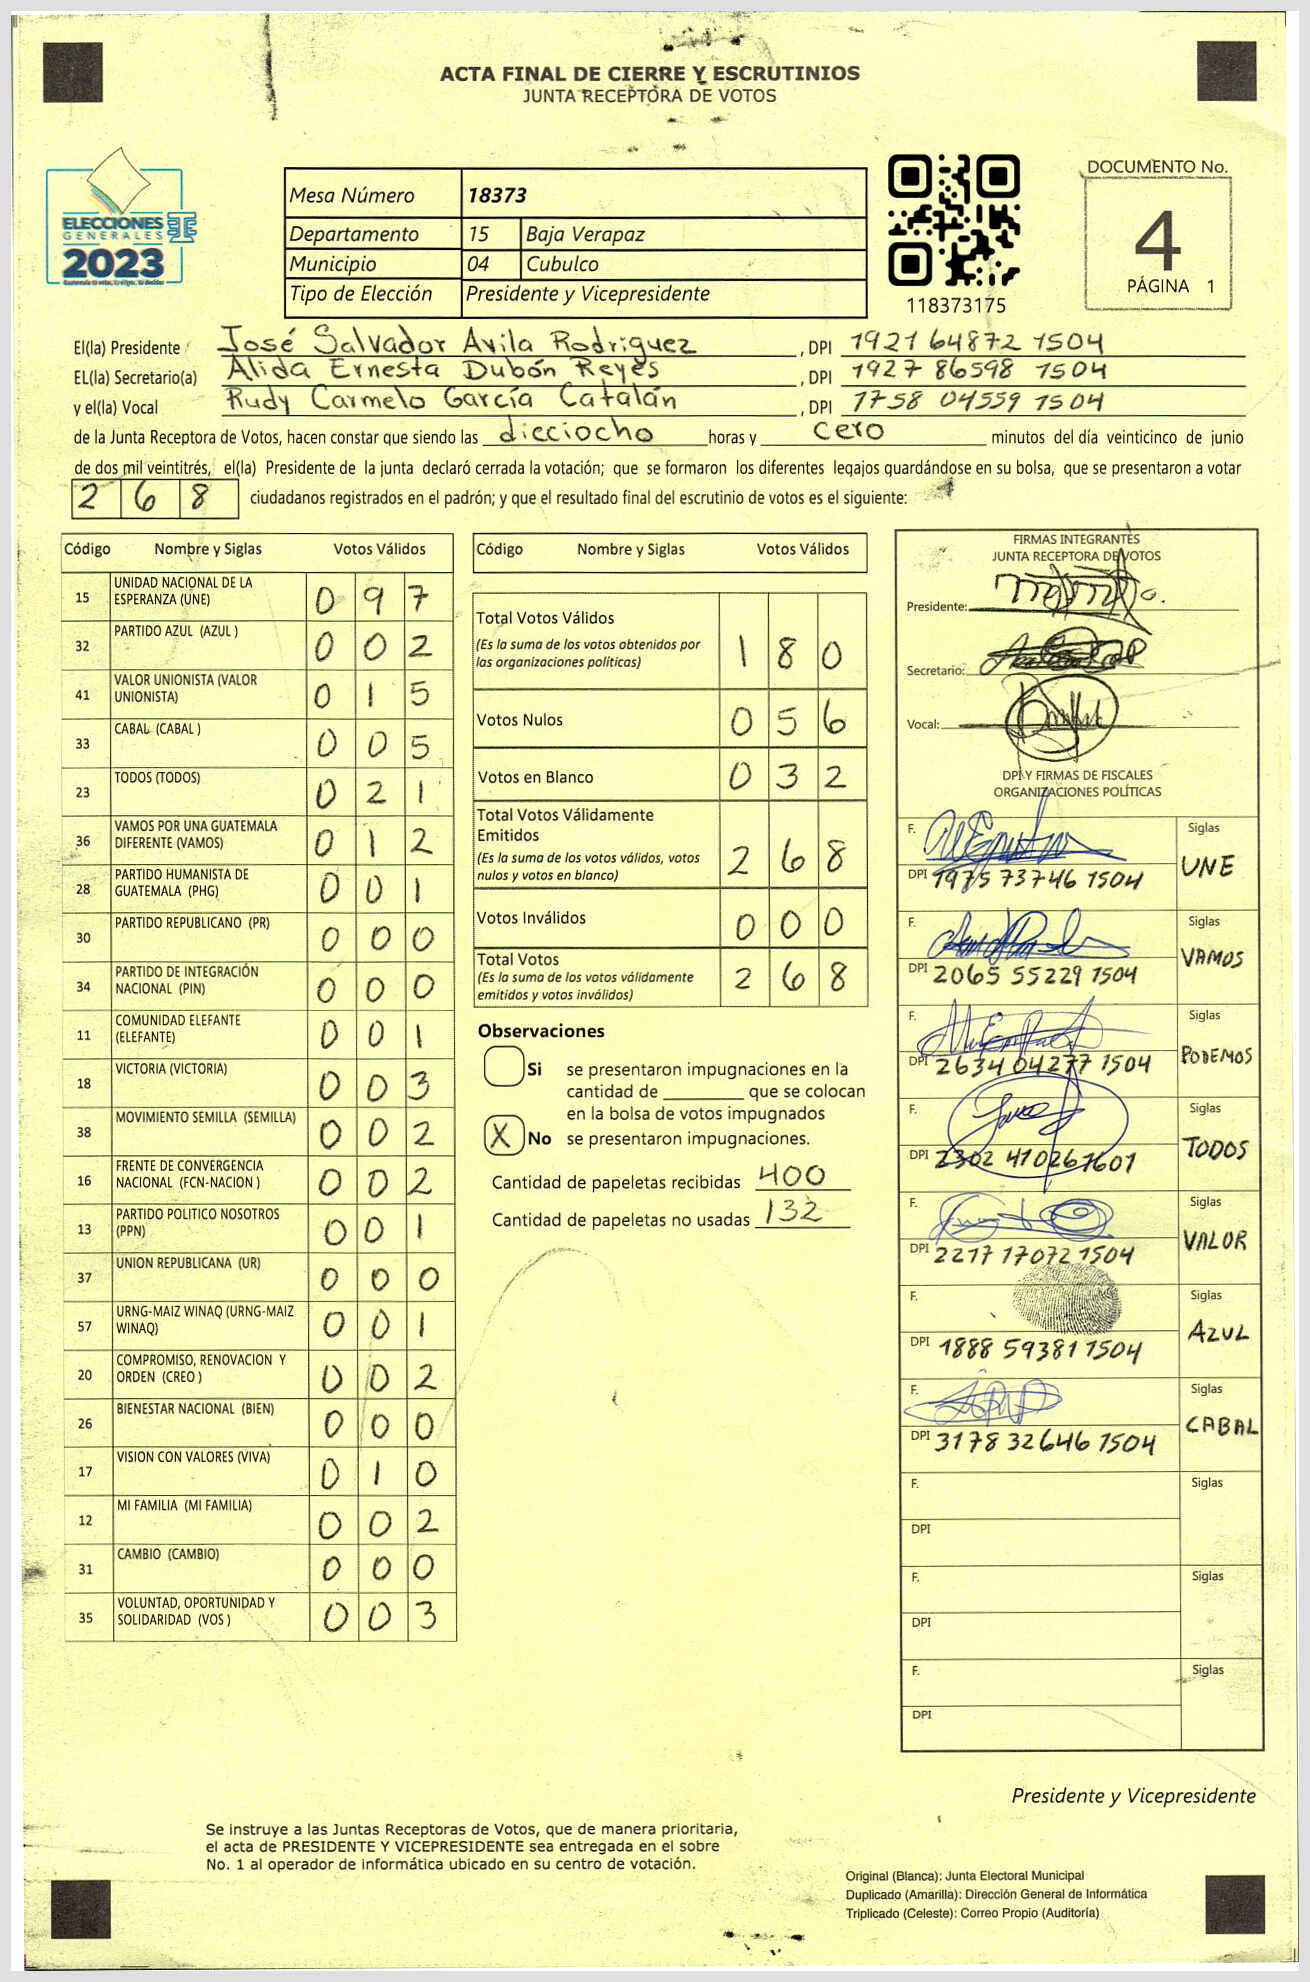 ACTA FINAL DE CIERRE Y ESCRUTINIOS
JUNTA RECEPTORA DE VOTOS
ELECCIONES
GENERALES
2023
Mesa Número 18373
Departamento 15 Baja Verapaz
Municipio 04 Cubulco
Tipo de Elección Presidente y Vicepresidente
118373175
DOCUMENTO No.
4
PÁGINA 1
El(la) Presidente José Salvador Avila Rodriguez, DPI 1921 64872 1504
EL(la) Secretario(a) Alida Ernesta Dubón Reyes, DPI 1927 86598 1504
y el(la) Vocal Rudy Carmelo García Catalán, DPI 1758 04559 1504
de la Junta Receptora de Votos, hacen constar que siendo las dieciocho horas y cero minutos del día veinticinco de junio
de dos mil veintitrés, el(la) Presidente de la junta declaró cerrada la votación; que se formaron los diferentes legajos guardándose en su bolsa, que se presentaron a votar
268 ciudadanos registrados en el padrón; y que el resultado final del escrutinio de votos es el siguiente:
Código Nombre y Siglas Votos Válidos
15 UNIDAD NACIONAL DE LA ESPERANZA (UNE) 097
32 PARTIDO AZUL (AZUL ) 002
41 VALOR UNIONISTA (VALOR UNIONISTA) 015
33 CABAL (CABAL ) 005
23 TODOS (TODOS) 021
36 VAMOS POR UNA GUATEMALA DIFERENTE (VAMOS) 012
28 PARTIDO HUMANISTA DE GUATEMALA (PHG) 001
30 PARTIDO REPUBLICANO (PR) 000
34 PARTIDO DE INTEGRACIÓN NACIONAL (PIN) 000
11 COMUNIDAD ELEFANTE (ELEFANTE) 001
18 VICTORIA (VICTORIA) 003
38 MOVIMIENTO SEMILLA (SEMILLA) 002
16 FRENTE DE CONVERGENCIA NACIONAL (FCN-NACION ) 002
13 PARTIDO POLITICO NOSOTROS (PPN) 001
37 UNION REPUBLICANA (UR) 000
57 URNG-MAIZ WINAQ (URNG-MAIZ WINAQ) 001
20 COMPROMISO, RENOVACION Y ORDEN (CREO ) 002
26 BIENESTAR NACIONAL (BIEN) 000
17 VISION CON VALORES (VIVA) 010
12 MI FAMILIA (MI FAMILIA) 002
31 CAMBIO (CAMBIO) 000
35 VOLUNTAD, OPORTUNIDAD Y SOLIDARIDAD (VOS ) 003
Código Nombre y Siglas Votos Válidos
Total Votos Válidos 180
(Es la suma de los votos obtenidos por
las organizaciones políticas)
Votos Nulos 056
Votos en Blanco 032
Total Votos Válidamente
Emitidos 268
(Es la suma de los votos válidos, votos
nulos y votos en blanco)
Votos Inválidos 000
Total Votos 268
(Es la suma de los votos válidamente
emitidos y votos inválidos)
Observaciones
Si se presentaron impugnaciones en la
cantidad de ________ que se colocan
en la bolsa de votos impugnados
X No se presentaron impugnaciones.
Cantidad de papeletas recibidas 400
Cantidad de papeletas no usadas 132
FIRMAS INTEGRANTES
JUNTA RECEPTORA DE VOTOS
Presidente:
Secretario:
Vocal:
DPI Y FIRMAS DE FISCALES
ORGANIZACIONES POLÍTICAS
F. Siglas
DPI 1975 73746 1504 UNE
F. Siglas
DPI 2065 55229 1504 VAMOS
F. Siglas
DPI 2634 04277 1504 PODEMOS
F. Siglas
DPI 2302 41026 1601 TODOS
F. Siglas
DPI 2217 17072 1504 VALOR
F. Siglas
DPI 1888 59381 1504 AZUL
F. Siglas
DPI 3178 32646 1504 CABAL
F. Siglas
DPI
F. Siglas
DPI
F. Siglas
DPI
Presidente y Vicepresidente
Se instruye a las Juntas Receptoras de Votos, que de manera prioritaria,
el acta de PRESIDENTE Y VICEPRESIDENTE sea entregada en el sobre
No. 1 al operador de informática ubicado en su centro de votación.
Original (Blanca): Junta Electoral Municipal
Duplicado (Amarilla): Dirección General de Informática
Triplicado (Celeste): Correo Propio (Auditoría)